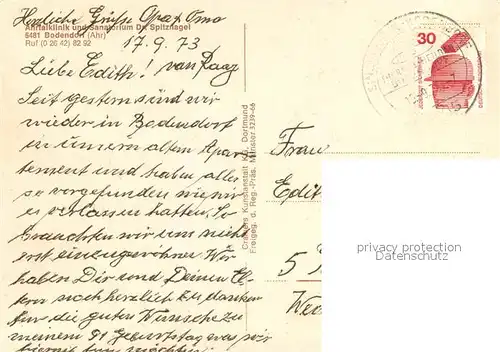 Herzliche Grüße Opa & Oma
Ahrtalklinik und Sanatorium Dr. Spitznagel
5481 Bodendorf (Ahr)
Ruf (0 26 42) 82 92
17.9.73
Liebe Edith! van Raay
Seit gestern sind wir
wieder in Bodendorf
in unsern alten Apar-
tement und haben alles
so vorgefunden wie wir
es verlassen hatten. So
brauchten wir uns nicht
erst eingewöhnen. Wir
haben Dir und Deinen El-
tern noch herzlich zu danken
für die guten Wünsche zu
meinem 91 Geburtstag was wir
hiermit tun möchten
Crämers Kunstanstalt KG, Dortmund
Freigeg. d. Reg.-Präs. Münster 3239-66
30
Frau
Edit
5
privacy protection
Datenschutz